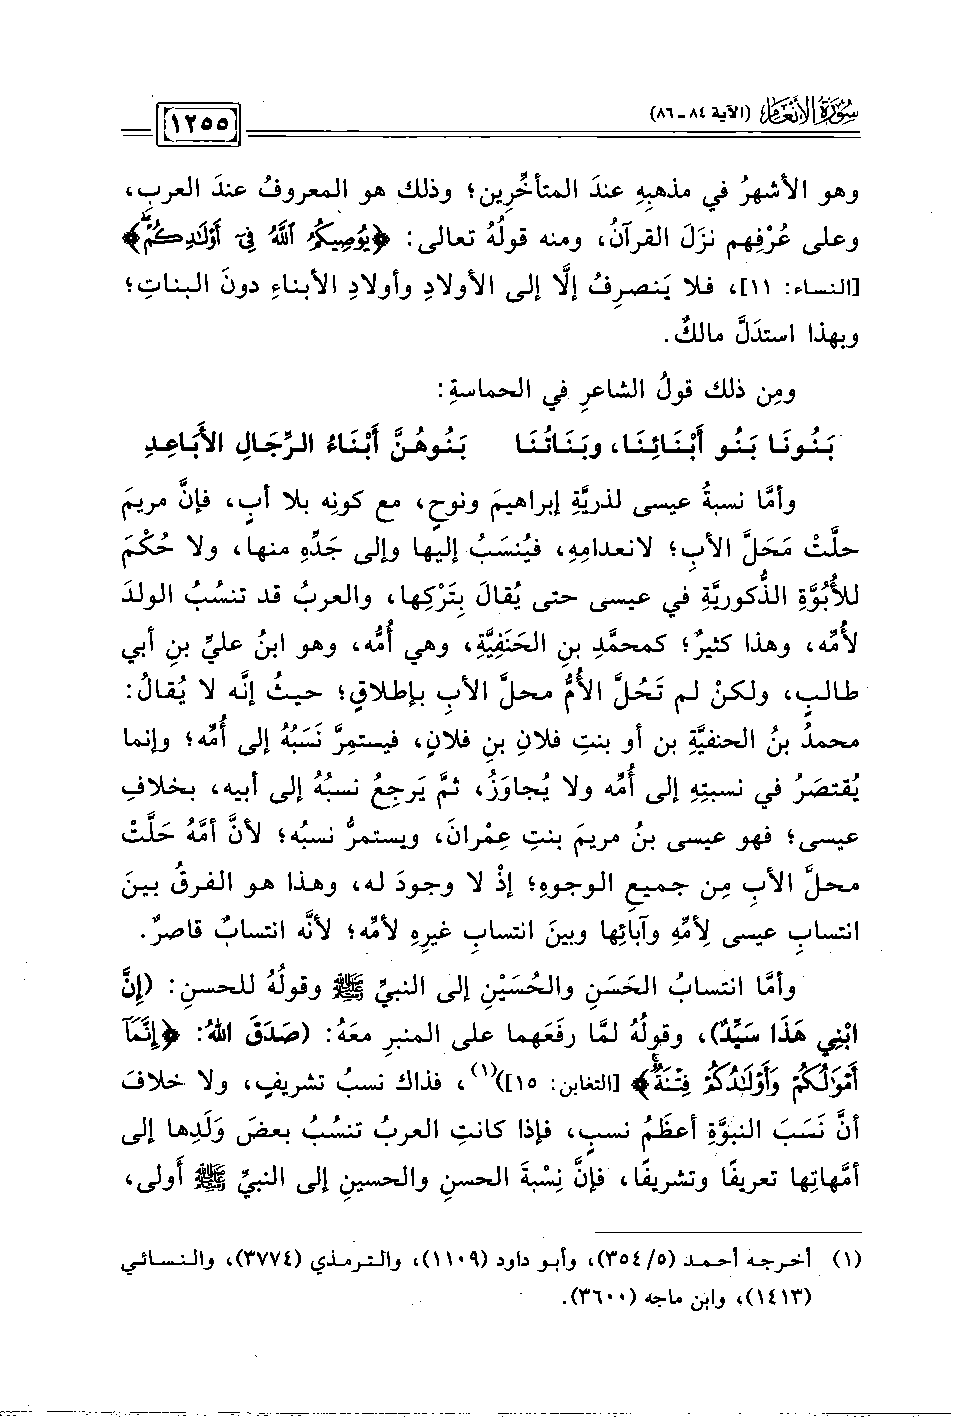 سُورَةُ الأَنْعَامِ (الآية ٨٤ - ٨٦)
١٢٥٥
وهو الأشهرُ في مذهبِهِ عندَ المتأخِّرين؛ وذلك هو المعروفُ عندَ العربِ،
وعلى عُرْفِهم نزَلَ القرآنُ، ومنه قولُهُ تعالى: ﴿يُوصِيكُمُ ٱللَّهُ فِىٓ أَوْلَٰدِكُمْۖ﴾
[النساء: ١١]، فلا يَنصرِفُ إلَّا إلى الأولادِ وأولادِ الأبناءِ دونَ البناتِ؛
وبهذا استدَلَّ مالكٌ.
ومِن ذلك قولُ الشاعرِ في الحماسةِ:
بَنُونَا بَنُو أَبْنَائِنَا، وبَنَاتُنَا بَنُوهُنَّ أَبْنَاءُ الرِّجَالِ الأَبَاعِدِ
وأمَّا نسبةُ عيسى لذريَّةِ إبراهيمَ ونوحٍ، مع كونِه بلا أبٍ، فإنَّ مريمَ
حلَّتْ مَحَلَّ الأبِ؛ لانعدامِهِ، فيُنسَبُ إليها وإلى جَدِّهِ منها، ولا حُكْمَ
للأُبُوَّةِ الذُّكوريَّةِ في عيسى حتى يُقالَ بِتَرْكِها، والعربُ قد تنسُبُ الولدَ
لأُمِّه، وهذا كثيرٌ؛ كمحمَّدِ بنِ الحَنَفِيَّةِ، وهي أمُّه، وهو ابنُ عليِّ بنِ أبي
طالبٍ، ولكنْ لم تَحُلَّ الأمُّ محلَّ الأبِ بإطلاقٍ؛ حيثُ إنَّه لا يُقالُ:
محمدُ بنُ الحنفيَّةِ بن أو بنتِ فلانِ بنِ فلانٍ، فيستمِرَّ نَسَبُهُ إلى أُمِّه؛ وإنما
يُقتصَرُ في نسبتِهِ إلى أُمِّه ولا يُجاوَزُ، ثمَّ يَرجِعُ نسبُهُ إلى أبيه، بخلافِ
عيسى؛ فهو عيسى بنُ مريمَ بنتِ عِمْرانَ، ويستمرُّ نسبُه؛ لأنَّ أمَّهُ حَلَّتْ
محلَّ الأبِ مِن جميعِ الوجوهِ؛ إذْ لا وجودَ له، وهذا هو الفرقُ بينَ
انتسابِ عيسى لِأمِّهِ وآبائِها وبينَ انتسابِ غيرِهِ لأمِّه؛ لأنَّه انتسابٌ قاصرٌ.
وأمَّا انتسابُ الحَسَنِ والحُسَيْنِ إلى النبيِّ ﷺ وقولُهُ للحسنِ: (إِنَّ
ابْنِي هَذَا سَيِّدٌ)، وقولُهُ لمَّا رفَعَهما على المنبرِ معَهُ: (صَدَقَ اللهُ: ﴿إِنَّمَآ
أَمْوَٰلُكُمْ وَأَوْلَٰدُكُمْ فِتْنَةٌۚ﴾ [التغابن: ١٥])(١)، فذاك نسبُ تشريفٍ، ولا خلافَ
أنَّ نَسَبَ النبوَّةِ أعظَمُ نسبٍ، فإذا كانتِ العربُ تنسُبُ بعضَ وَلَدِها إلى
أمَّهاتِها تعريفًا وتشريفًا، فإنَّ نِسْبَةَ الحسنِ والحسينِ إلى النبيِّ ﷺ أَولى،
(١) أخرجه أحمد (٣٥٤/٥)، وأبو داود (١١٠٩)، والترمذي (٣٧٧٤)، والنسائي
(١٤١٣)، وابن ماجه (٣٦٠٠).